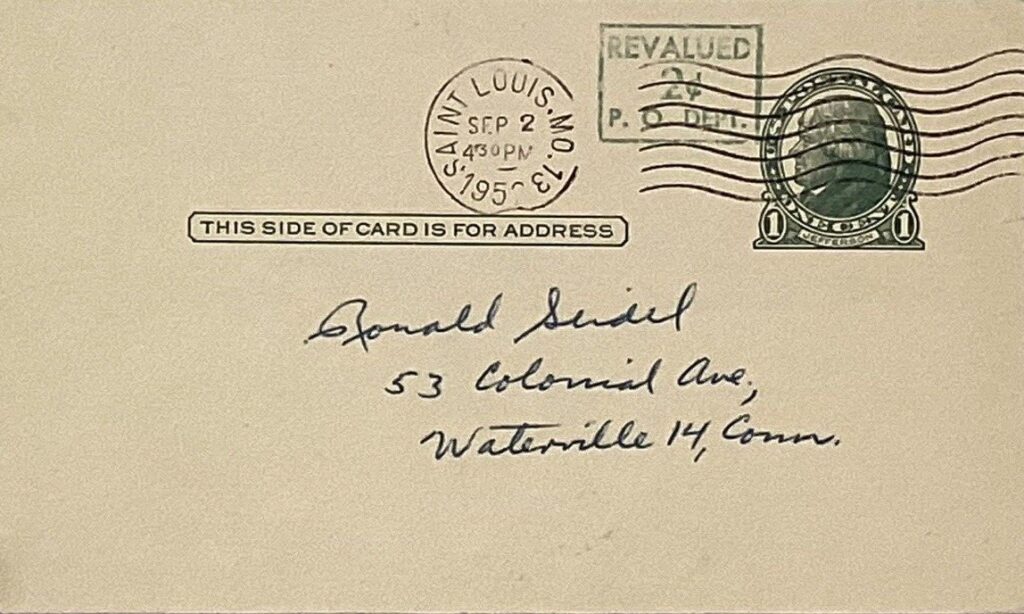 REVALUED
2¢
P. O. DEPT.
SAINT LOUIS, MO. 13
SEP 2
4 30 PM
THIS SIDE OF CARD IS FOR ADDRESS
ONE CENT
1 JEFFERSON 1
Ronald Seidel
53 Colonial Ave.,
Waterville 14, Conn.